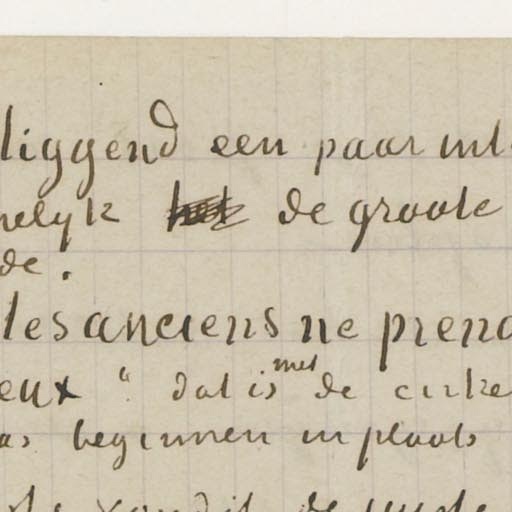 liggend een paar uit
nelyk de groote
de.
les anciens ne prend
eux " dat is met de cirke
as beginnen in plaats